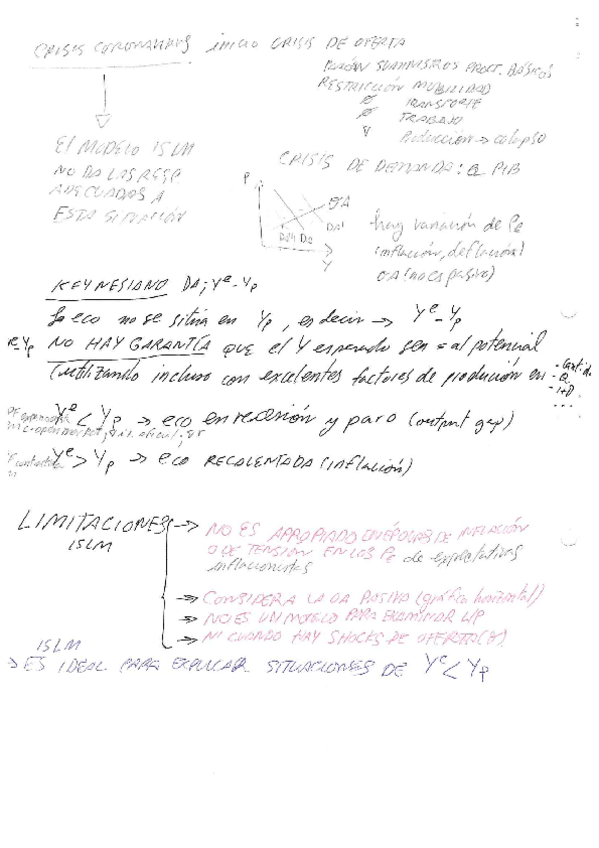 CRISIS CORONAVIRUS inicio CRISIS DE OFERTA
SUMINISTROS PROCT. BÁSICOS
RESTRICCIÓN MOBILIDAD
TRANSPORTE
TRABAJO
Producción → colapso
El MODELO ISLM
NO DA LAS RESP
ADECUADAS A
ESTA SITUACIÓN
CRISIS DE DEMANDA: PIB
P
OA
DA1
DA2
Y
hay variación de Pe
(inflación, deflación)
OA (no es pasiva)
KEYNESIANO DA; Yᵉ - Yp
la eco no se situa en Yp, es decir → Yᵉ - Yp
NO HAY GARANTÍA que el Y esperado sea = al potencial
(utilizando incluso con excelentes factores de produción en
- Q
- I+D
- ...
Yᵉ < Yp → eco en recesión y paro (output gap)
Yᵉ > Yp → eco RECALENTADA (inflación)
LIMITACIONES →
ISLM
NO ES APROPIADO EN ÉPOCAS DE INFLACIÓN
O DE TENSION EN LOS Pe de expectativas
inflacionistas
→ CONSIDERA LA OA PASIVA (gráfica horizontal)
→ NO ES UN MODELO PARA EXAMINAR L/P
→ NI CUANDO HAY SHOCKS DE OFERTA
ISLM
→ ES IDEAL PARA EXPLICAR SITUACIONES DE Yᵉ < Yp